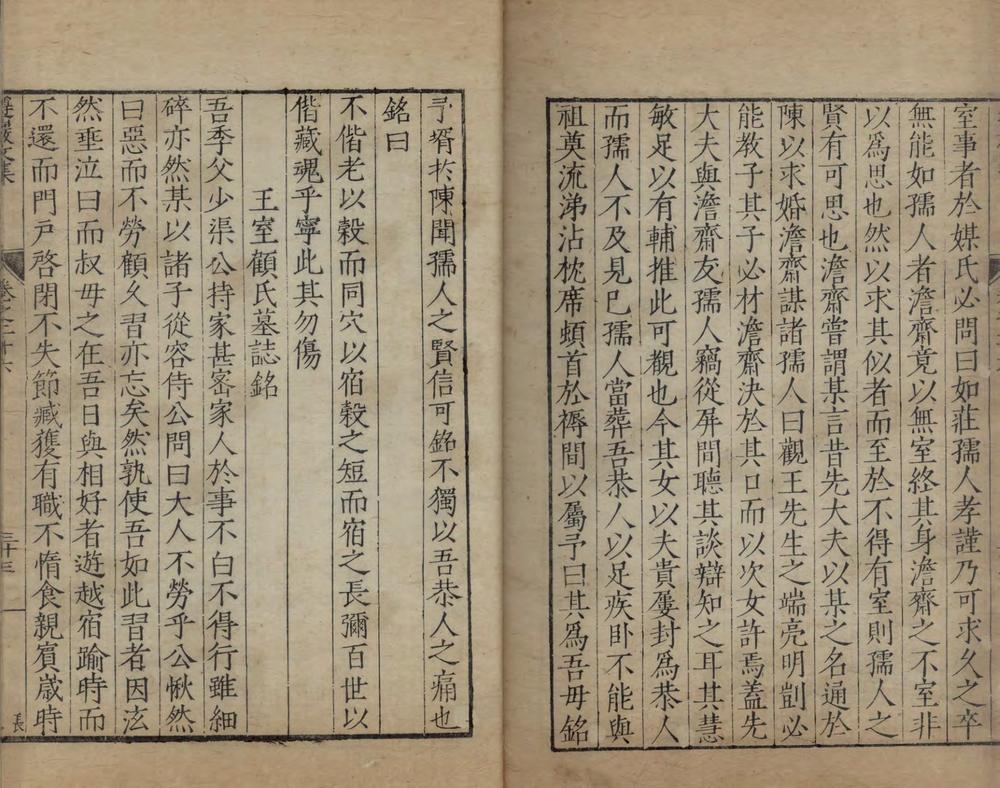 室事者於媒氏必問曰如莊孺人孝謹乃可求久之卒
無能如孺人者澹齋竟以無室終其身澹齋之不室非
以爲思也然以求其似者而至於不得有室則孺人之
賢有可思也澹齋嘗謂某言昔先大夫以某之名通於
陳以求婚澹齋謀諸孺人曰觀王先生之端亮明剴必
能教子其子必材澹齋決於其口而以次女許焉蓋先
大夫與澹齋友孺人竊從屏間聽其談辯知之耳其慧
敏足以有輔推此可觀也今其女以夫貴屢封爲恭人
而孺人不及見巳孺人當葬吾恭人以足疾卧不能與
祖奠流涕沾枕席頓首於褥間以屬予曰其爲吾毋銘
予壻於陳聞孺人之賢信可銘不獨以吾恭人之痛也
銘曰
不偕老以穀而同穴以宿穀之短而宿之長彌百世以
偕藏魂乎寧此其勿傷
王室顧氏墓誌銘
吾季父少渠公持家甚宻家人於事不白不得行雖細
碎亦然某以諸子從容侍公問曰大人不勞乎公愀然
曰惡而不勞顧久習亦忘矣然孰使吾如此習者因泫
然垂泣曰而叔毋之在吾日與相好者遊越宿踰時而
不還而門戸啓閉不失節臧獲有職不惰食親賔歲時
遵巖文集
卷之三十六
三十三
長